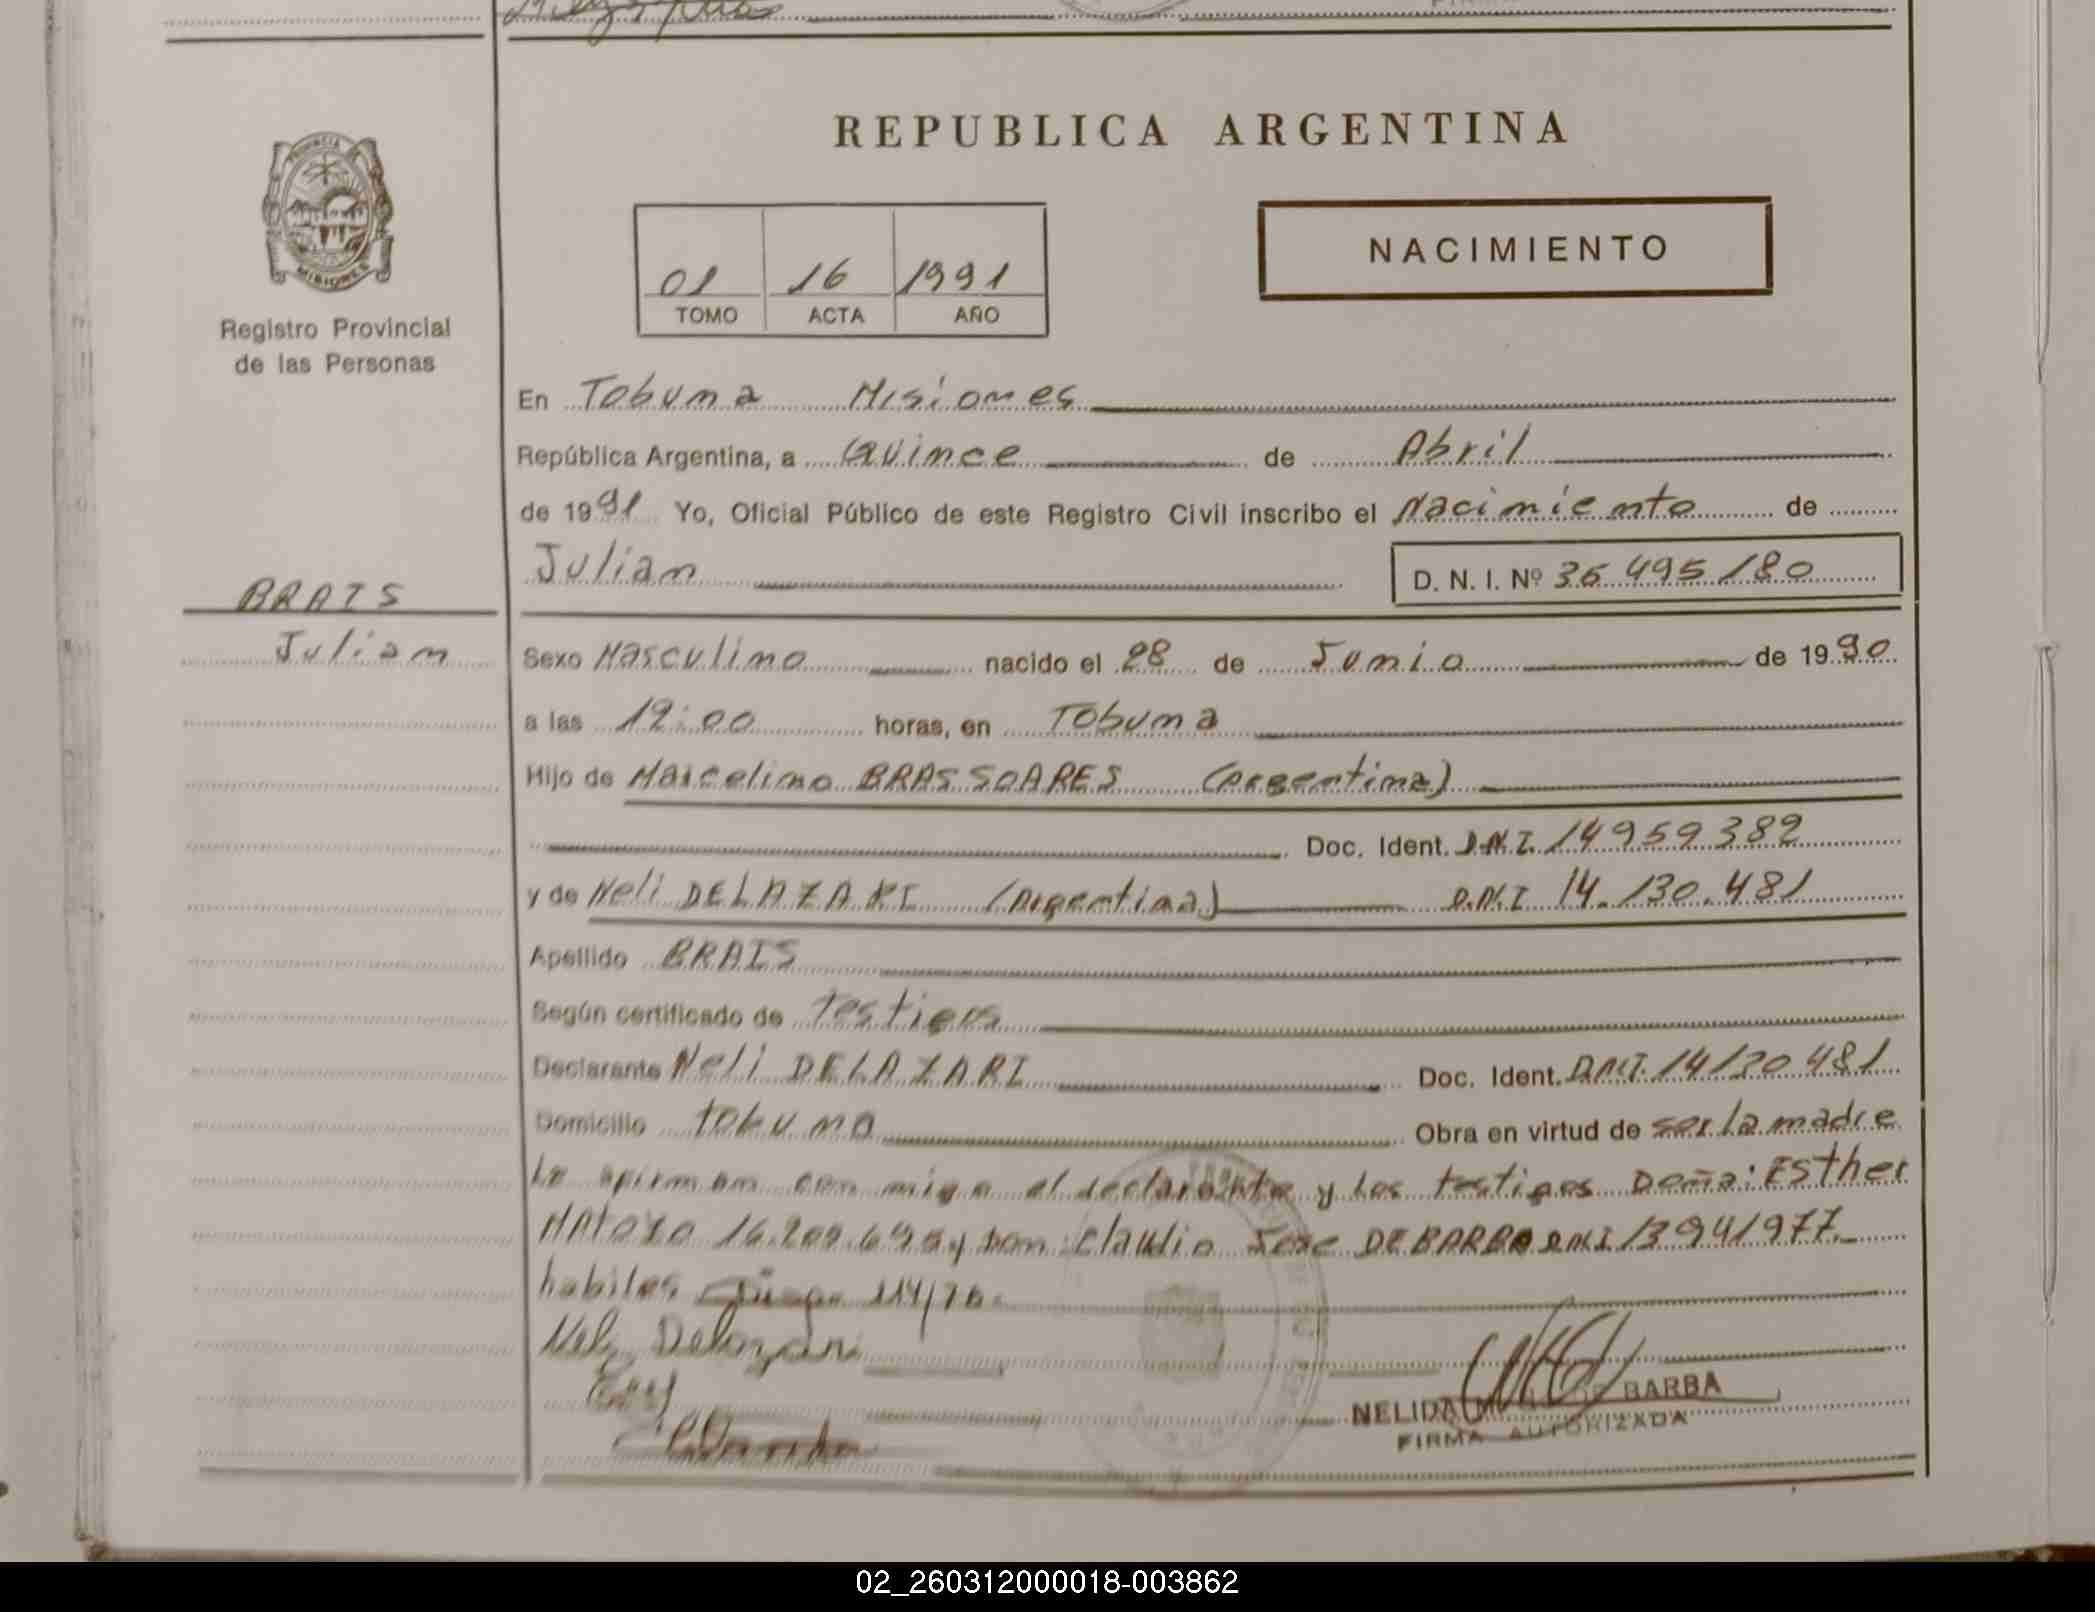 REPUBLICA ARGENTINA
PROVINCIA DE
MISIONES
Registro Provincial
de las Personas
01 16 1991
TOMO ACTA AÑO
NACIMIENTO
En Tobuna Misiones
República Argentina, a Quince de Abril
de 1991 Yo, Oficial Público de este Registro Civil inscribo el Nacimiento de
Julian D. N. I. Nº 36 495180
BRAIS
Julian
Sexo Masculino nacido el 28 de Junio de 1990
a las 12:00 horas, en Tobuna
Hijo de Marcelino BRAS SOARES (Argentina)
Doc. Ident. D.N.I. 14959382
y de Neli DELAZARI (Argentina) D.N.I 14.130.481
Apellido BRAIS
Según certificado de Testigos
Declarante Neli DELAZARI Doc. Ident. D.N.I. 14130481
Domicilio tobuna Obra en virtud de ser la madre
Lo firman con migo el declarante y los testigos Doña: Esther
y Don: Claudio Jose DE BARBA DNI 13941977
habiles
Neli Delazari
NELIDA DE BARBA
FIRMA AUTORIZADA
02_260312000018-003862